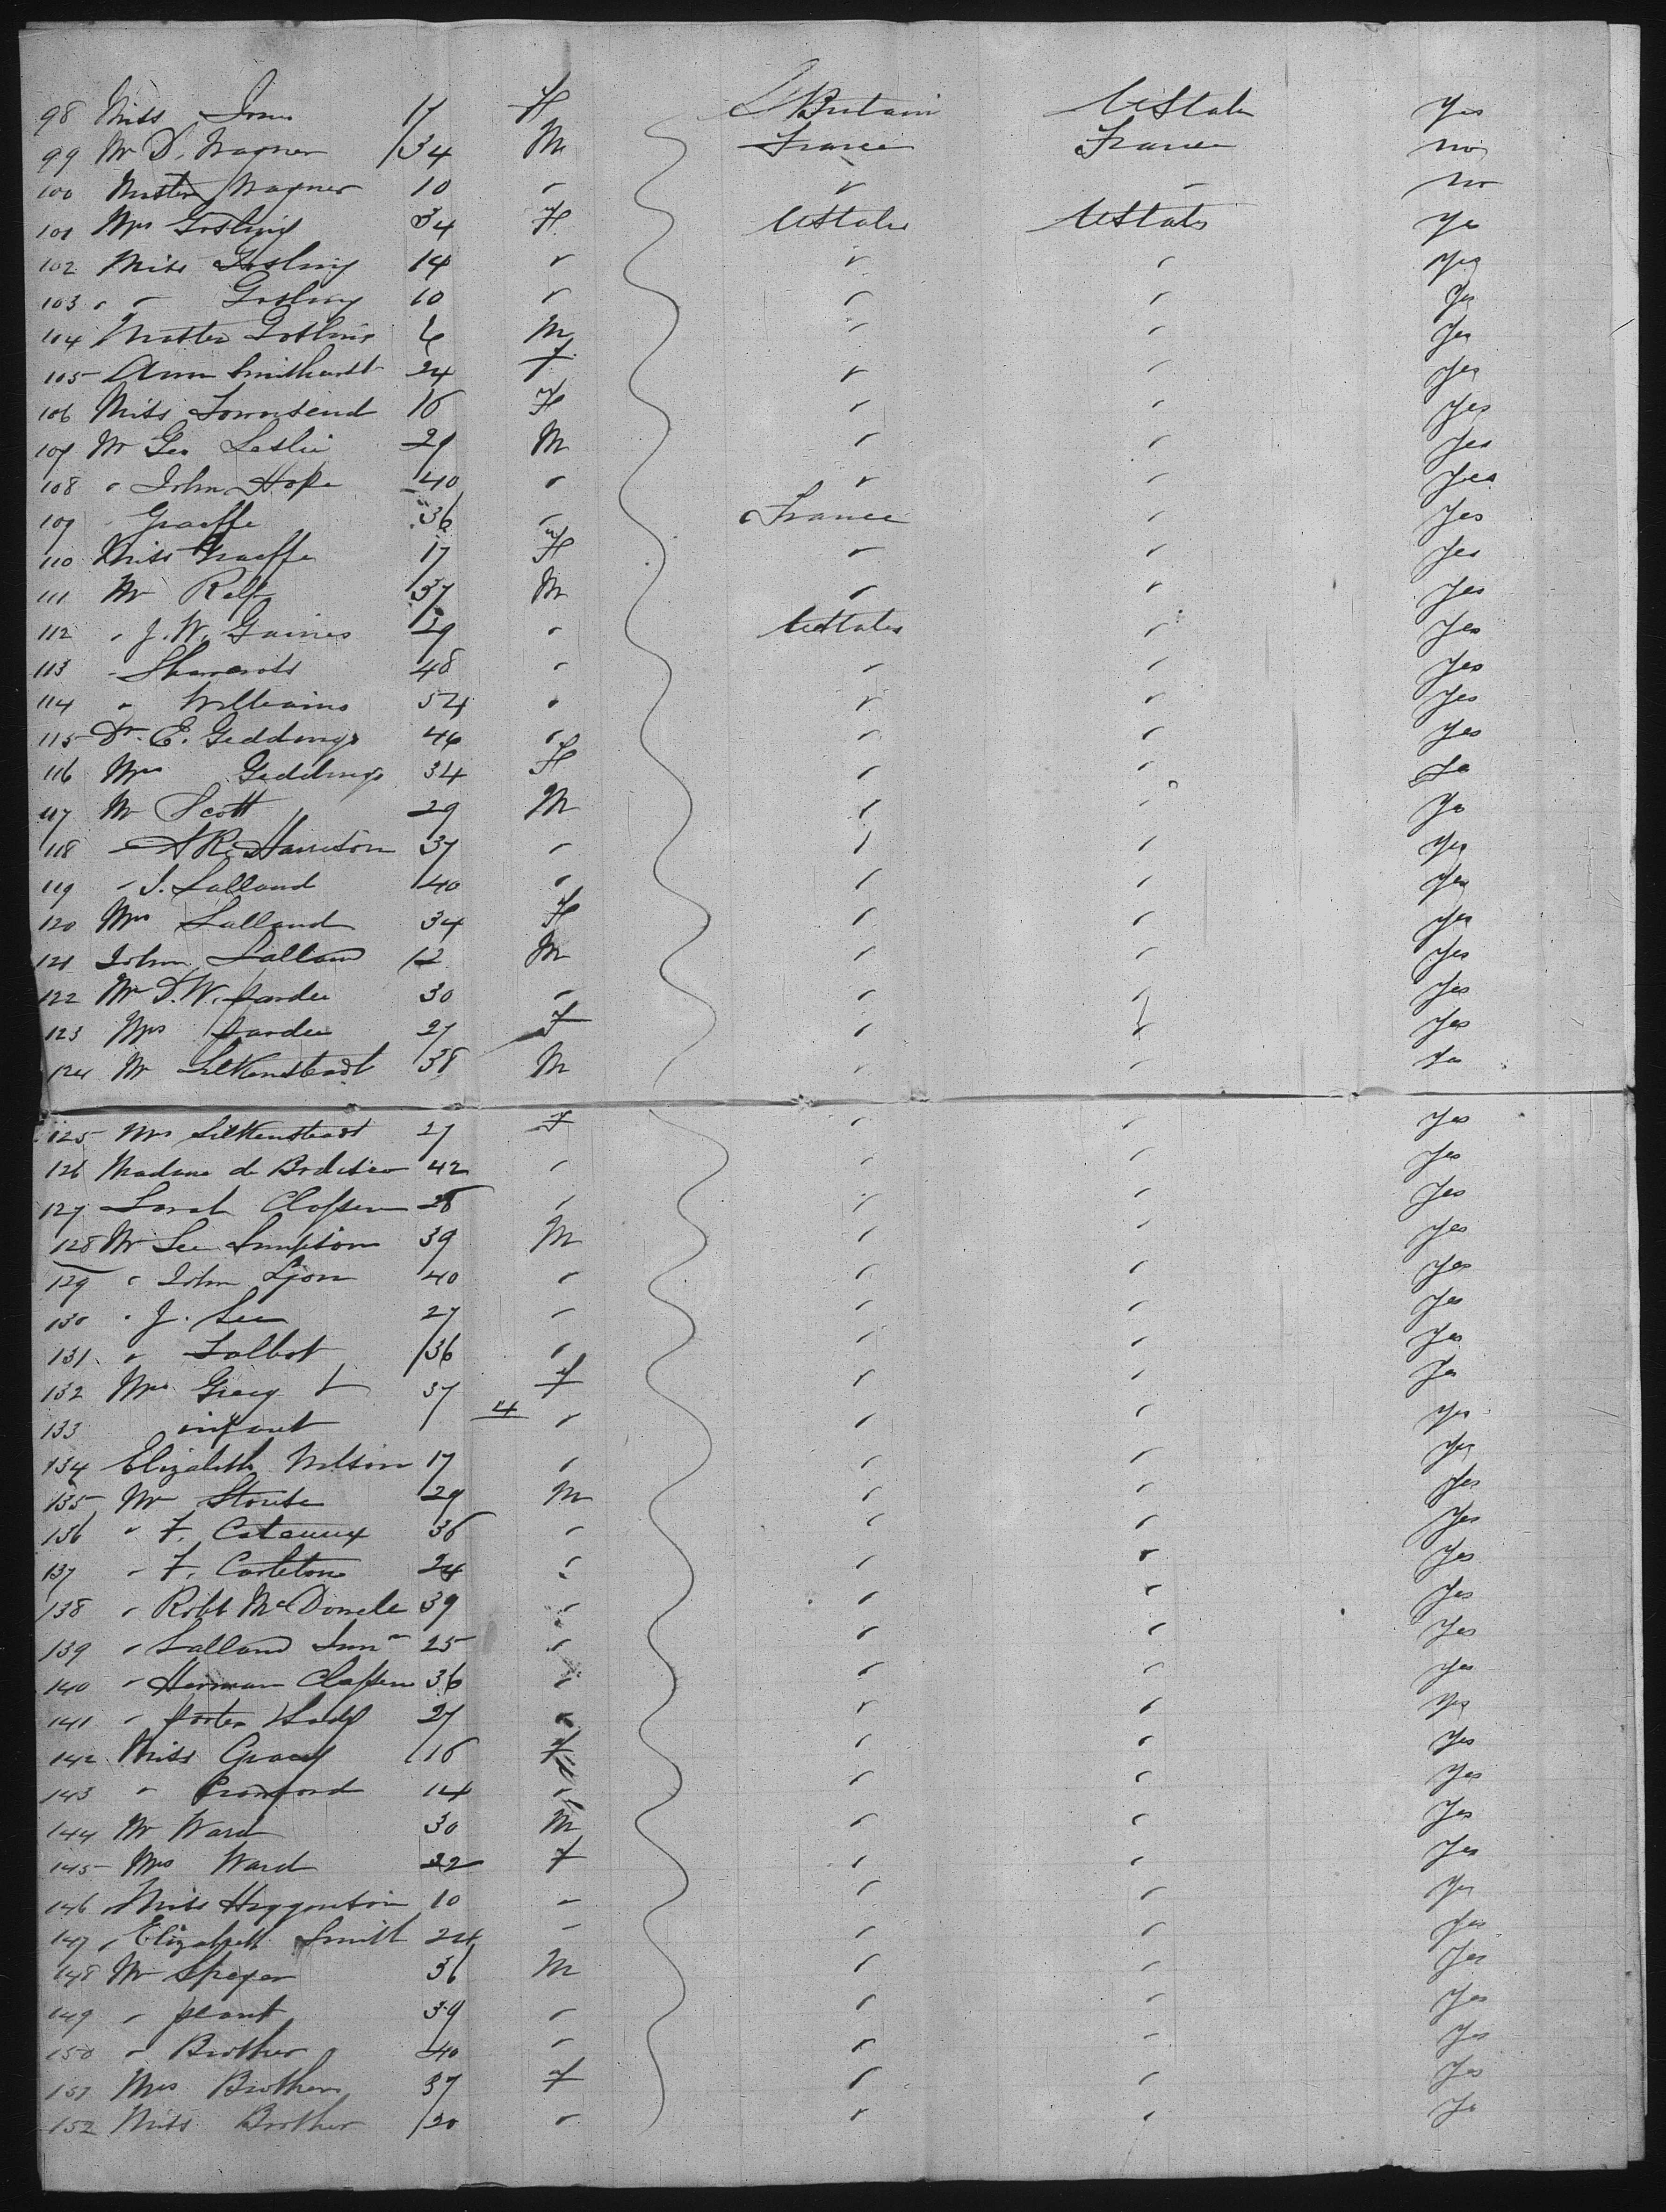 98 Miss 17 F Britain UStates Yes
99 Mr D. Wagner 34 M France France no
100 Master Wagner 10 " " " no
101 Mrs Gosling 34 F UStates UStates Yes
102 Miss Gosling 14 " " " Yes
103 " " Gosling 10 " " " Yes
104 Master Gosling 6 M " " Yes
105 Ann Smithurst 24 F " " Yes
106 Miss Townsend 18 F " " Yes
107 Mr Geo Leslie 29 M " " Yes
108 " John Hope 40 " " " Yes
109 " Graeffe 36 " France " Yes
110 Miss Graeffe 17 F " " Yes
111 Mr 37 M " " Yes
112 " J. W. Gaines 29 " UStates " Yes
113 " 48 " " " Yes
114 " Williams 54 " " " Yes
115 Dr. E. Geddings 46 " " " Yes
116 Mrs Geddings 34 F " " Yes
117 Mr Scott 29 M " " Yes
118 " Harrison 37 " " " Yes
119 " J. Salland 40 " " " Yes
120 Mrs Salland 34 F " " Yes
121 John Salland 12 M " " Yes
122 Mr D. W. Pardee 30 " " " Yes
123 Mrs Pardee 27 F " " Yes
124 Mr Silkenstadt 38 M " " Yes
125 Mrs Silkenstadt 27 F " " Yes
126 Madame de Bodisco 42 " " " Yes
127 Sarah Classen 28 " " " Yes
128 Mr Lee Simpson 39 M " " Yes
129 " John Lyon 40 " " " Yes
130 " J. Lee 27 " " " Yes
131 " Talbot 36 " " " Yes
132 Mrs 37 F " " Yes
133 infant 4 " " " Yes
134 Elizabeth Wilson 17 " " " Yes
135 Mr 29 M " " Yes
136 " F. 36 " " " Yes
137 " F. Carleton 24 " " " Yes
138 " Robt McDonele 39 " " " Yes
139 " Salland Junr 25 " " " Yes
140 " Herman Classen 36 " " " Yes
141 " 27 " " " Yes
142 Miss 16 F " " Yes
143 " 14 " " " Yes
144 Mr Ward 30 M " " Yes
145 Mrs Ward 32 F " " Yes
146 Miss Higgonson 10 " " " Yes
147 " Elizabeth Smith 24 " " " Yes
148 Mr Speyer 36 M " " Yes
149 " 39 " " " Yes
150 " Brother 40 " " " Yes
151 Mrs Brother 37 F " " Yes
152 Miss Brother 20 " " " Yes